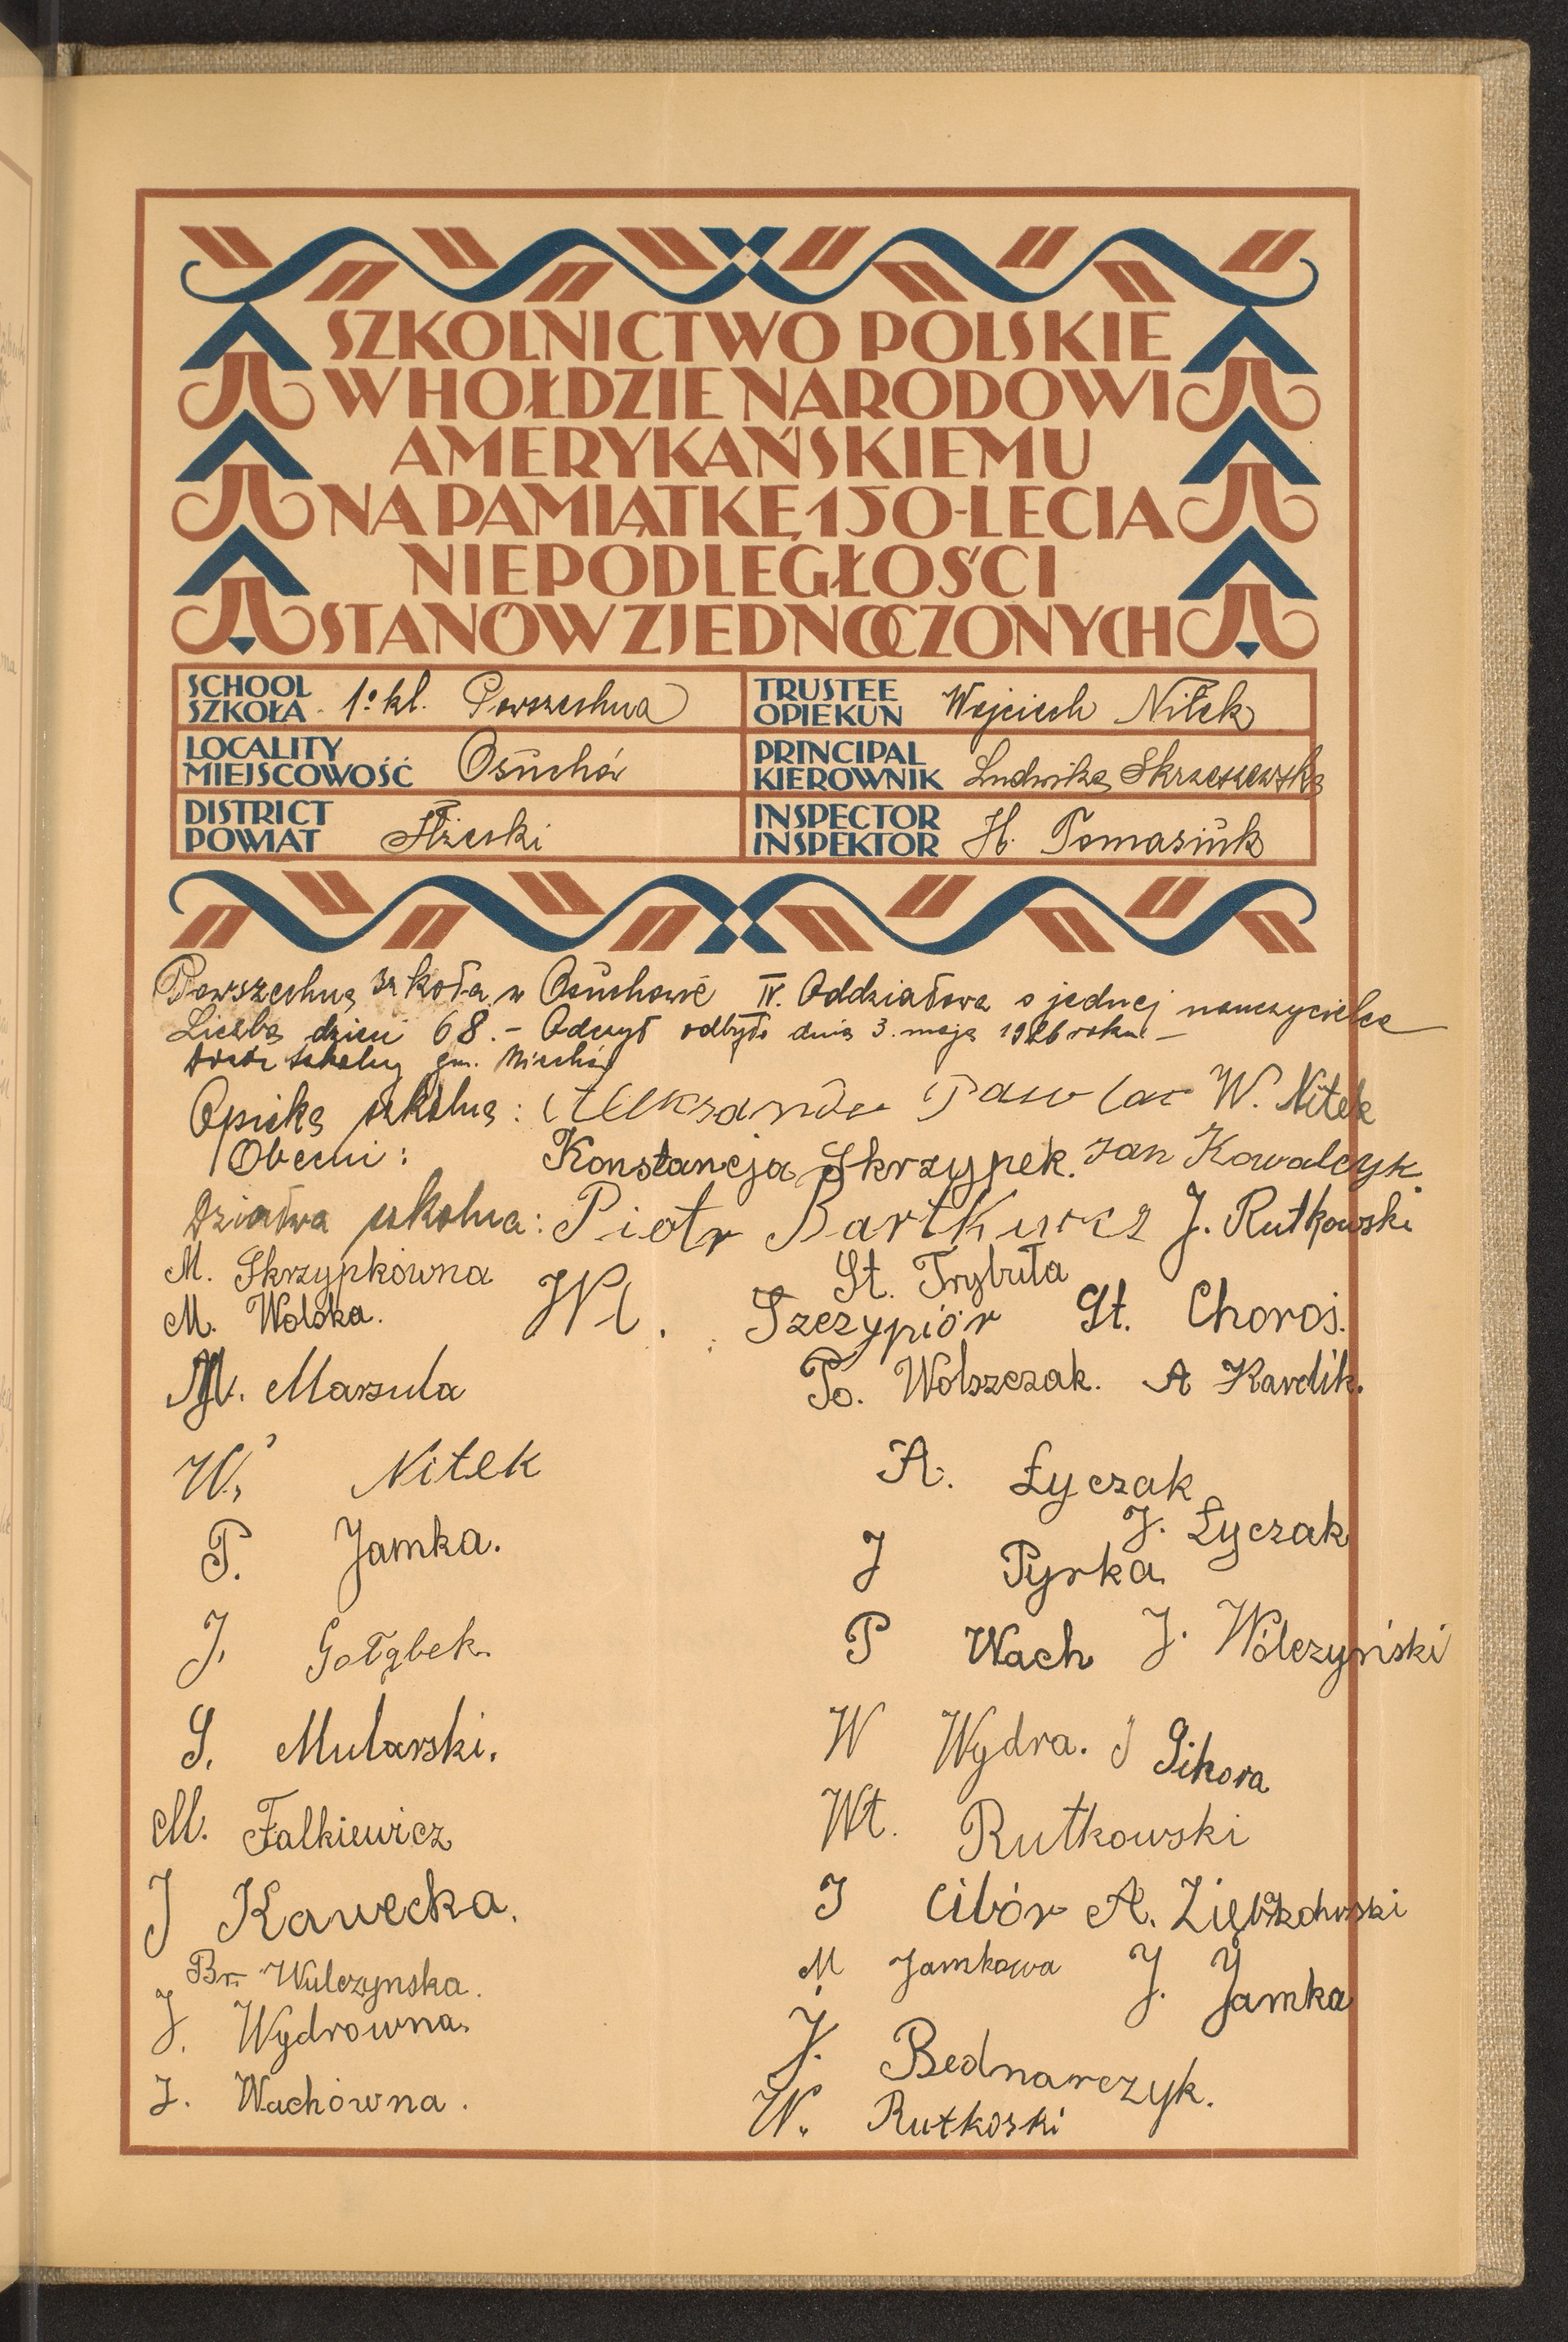 SZKOLNICTWO POLSKIE
W HOŁDZIE NARODOWI
AMERYKAŃSKIEMU
NA PAMIĄTKĘ 150-LECIA
NIEPODLEGŁOŚCI
STANÓW ZJEDNOCZONYCH
SCHOOL
SZKOŁA 1º kl. Powszechna
TRUSTEE
OPIEKUN Wojciech Nitek
LOCALITY
MIEJSCOWOŚĆ Osuchów
PRINCIPAL
KIEROWNIK Ludwika Skrzeszewska
DISTRICT
POWIAT Iłżecki
INSPECTOR
INSPEKTOR H. Tomasiuk
Powszechna szkoła w Osuchowie IV. Oddziałowa o jednej nauczycielce
Liczba dzieci 68. - Odczyt odbyto dnia 3. maja 1926 roku. -
szkolny gm.
Opieka szkolna: Aleksander W. Nitek
Obecni: Konstancja Skrzypek. Jan Kowalczyk.
Dziatwa szkolna: Piotr J. Rutkowski
M. Skrzypkówna St. Trybuła
M. Wolska. Wł. Szczypiór St. Choroś.
M. Marzula Po. Wolszczak. A Kardik.
W. Nitek A. Łyczak
J. Łyczak
P. Jamka. J Pyrka
J. Gołąbek. P Wach J. Wólczyński
S. Mularski. W Wydra. J Sikora
M. Falkiewicz Wł. Rutkowski
J Kawecka. J Cibór A.
Br. Wulczynska. M Jamkowa J. Jamka
J. Wydrowna. J. Bednarczyk.
J. Wachówna. W. Rutkoski